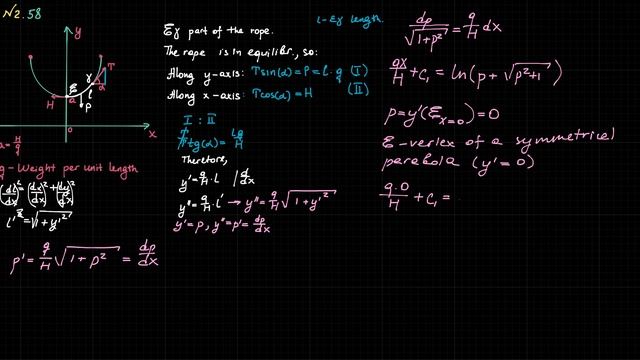 №2.58
y
T
γ
ξ
l
α
H
a
P
0
x
a = H/q
q - Weight per unit length
(dl/dx)² = (dx/dx)² + (dy/dx)²
l'² = √1 + y'²
p' = q/H √1 + p² = dp/dx
l - ξγ length.
ξγ part of the rope.
The rope is in equilibr., so:
Along y-axis: T sin(α) = P = l · q (I)
Along x-axis: T cos(α) = H (II)
I : II
tg(α) = lq/H
Therefore,
y' = q/H · l | d/dx
y'' = q/H · l' → y'' = q/H √1 + y'²
y' = p, y'' = p' = dp/dx
dp/√1+p² = q/H dx
qx/H + C₁ = ln(p + √p²+1)
p = y'(ξ x=0) = 0
ξ - vertex of a symmetrical
parabola (y' = 0)
q·0/H + C₁ =